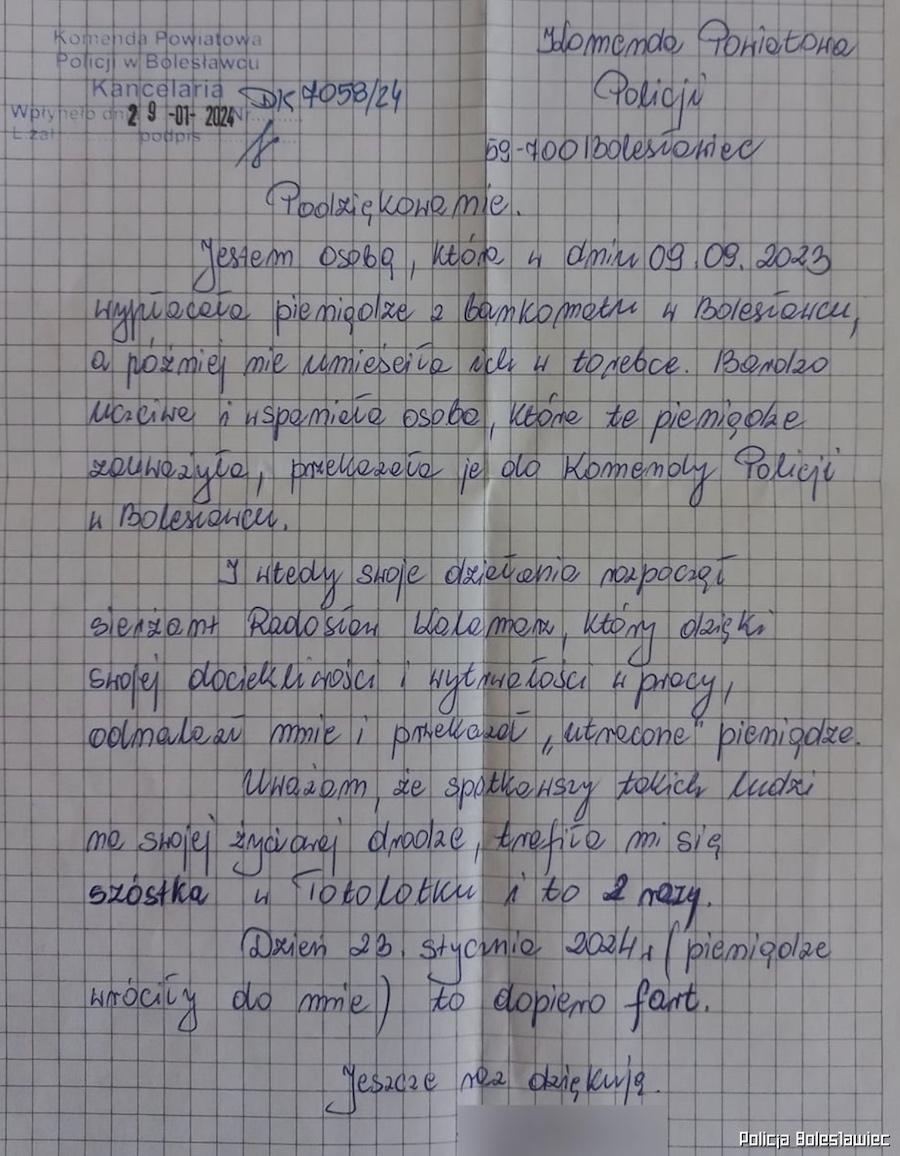 Komenda Powiatowa
Policji w Bolesławcu
Kancelaria
Wpłynęło dn. 29 -01- 2024 Nr DK 7058/24
L.zał. podpis
Komenda Powiatowa
Policji
59-700 Bolesławiec
Podziękowanie.
Jestem osobą, która w dniu 09.09.2023
wypłacała pieniądze z bankomatu w Bolesławcu,
a później nie umieściła ich w torebce. Bardzo
uczciwa i wspaniała osoba, która te pieniądze
zauważyła, przekazała je do Komendy Policji
w Bolesławcu.
I wtedy swoje działania rozpoczął
sierżant Radosław, który dzięki
swojej dociekliwości i wytrwałości w pracy,
odnalazł mnie i przekazał „utracone" pieniądze.
Uważam, że spotkawszy takich ludzi
na swojej życiowej drodze, trafiła mi się
szóstka w Totolotku i to 2 razy.
Dzień 23. stycznia 2024r (pieniądze
wróciły do mnie) to dopiero fart.
Jeszcze raz dziękuję.
Policja Bolesławiec